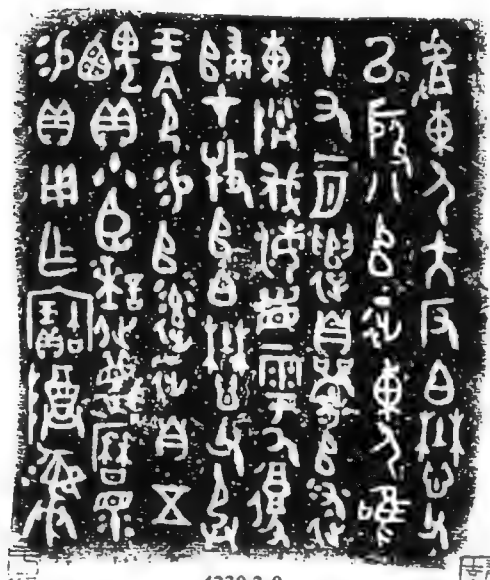 𠭯東尸大反白懋父
㠯殷八𠂤征東尸唯
十又一月遣自𠂤述
東伐海眉雩厥復
歸才牧𠂤白懋父承
王令易𠂤率征自五
齵貝小臣謎蔑曆眔
易貝用乍寶尊彝